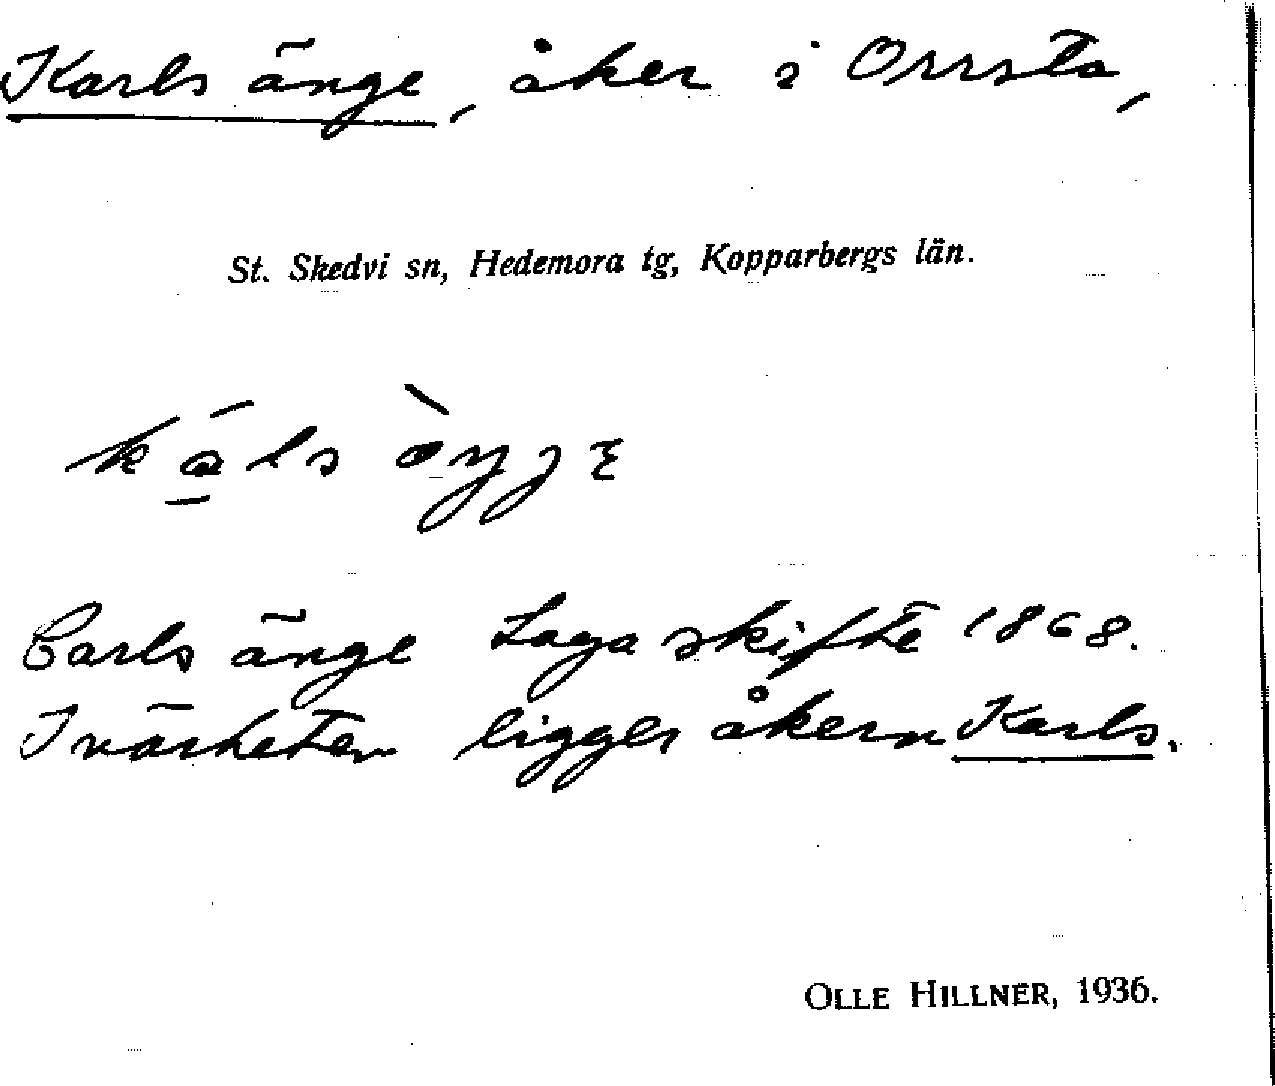 Karls änge, åker i Orrsta,
St. Skedvi sn, Hedemora tg, Kopparbergs län.
Carls änge Laga skifte 1868.
I närheten ligger åkern Karls.
OLLE HILLNER, 1936.